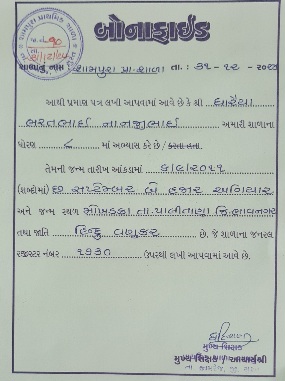 બોનાફાઈડ
શાળાનું નામ શામપુરા પ્રા.શાળા તા. : ૩૧-૧૨-૨૦૨૩
આથી પ્રમાણ પત્ર લખી આપવામાં આવે છે કે શ્રી
ભરતભાઈ નાનજીભાઈ અમારી શાળાના
ધોરણ ૮ માં અભ્યાસ કરે છે / કરતા હતા.
તેમની જન્મ તારીખ આંકડામાં ૬/૯/૨૦૧૧
(શબ્દોમાં) છ સપ્ટેમ્બર બે હજાર અગિયાર
અને જન્મ સ્થળ તા.પાલીતાણા જિ.ભાવનગર
તથા જાતિ હિન્દુ વણકર છે. જે શાળાના જનરલ
રજીસ્ટર નંબર ૧૧૩૦ ઉપરથી લખી આપવામાં આવે છે.
મુખ્ય શિક્ષક
મુખ્ય શિક્ષક / આચાર્યશ્રી